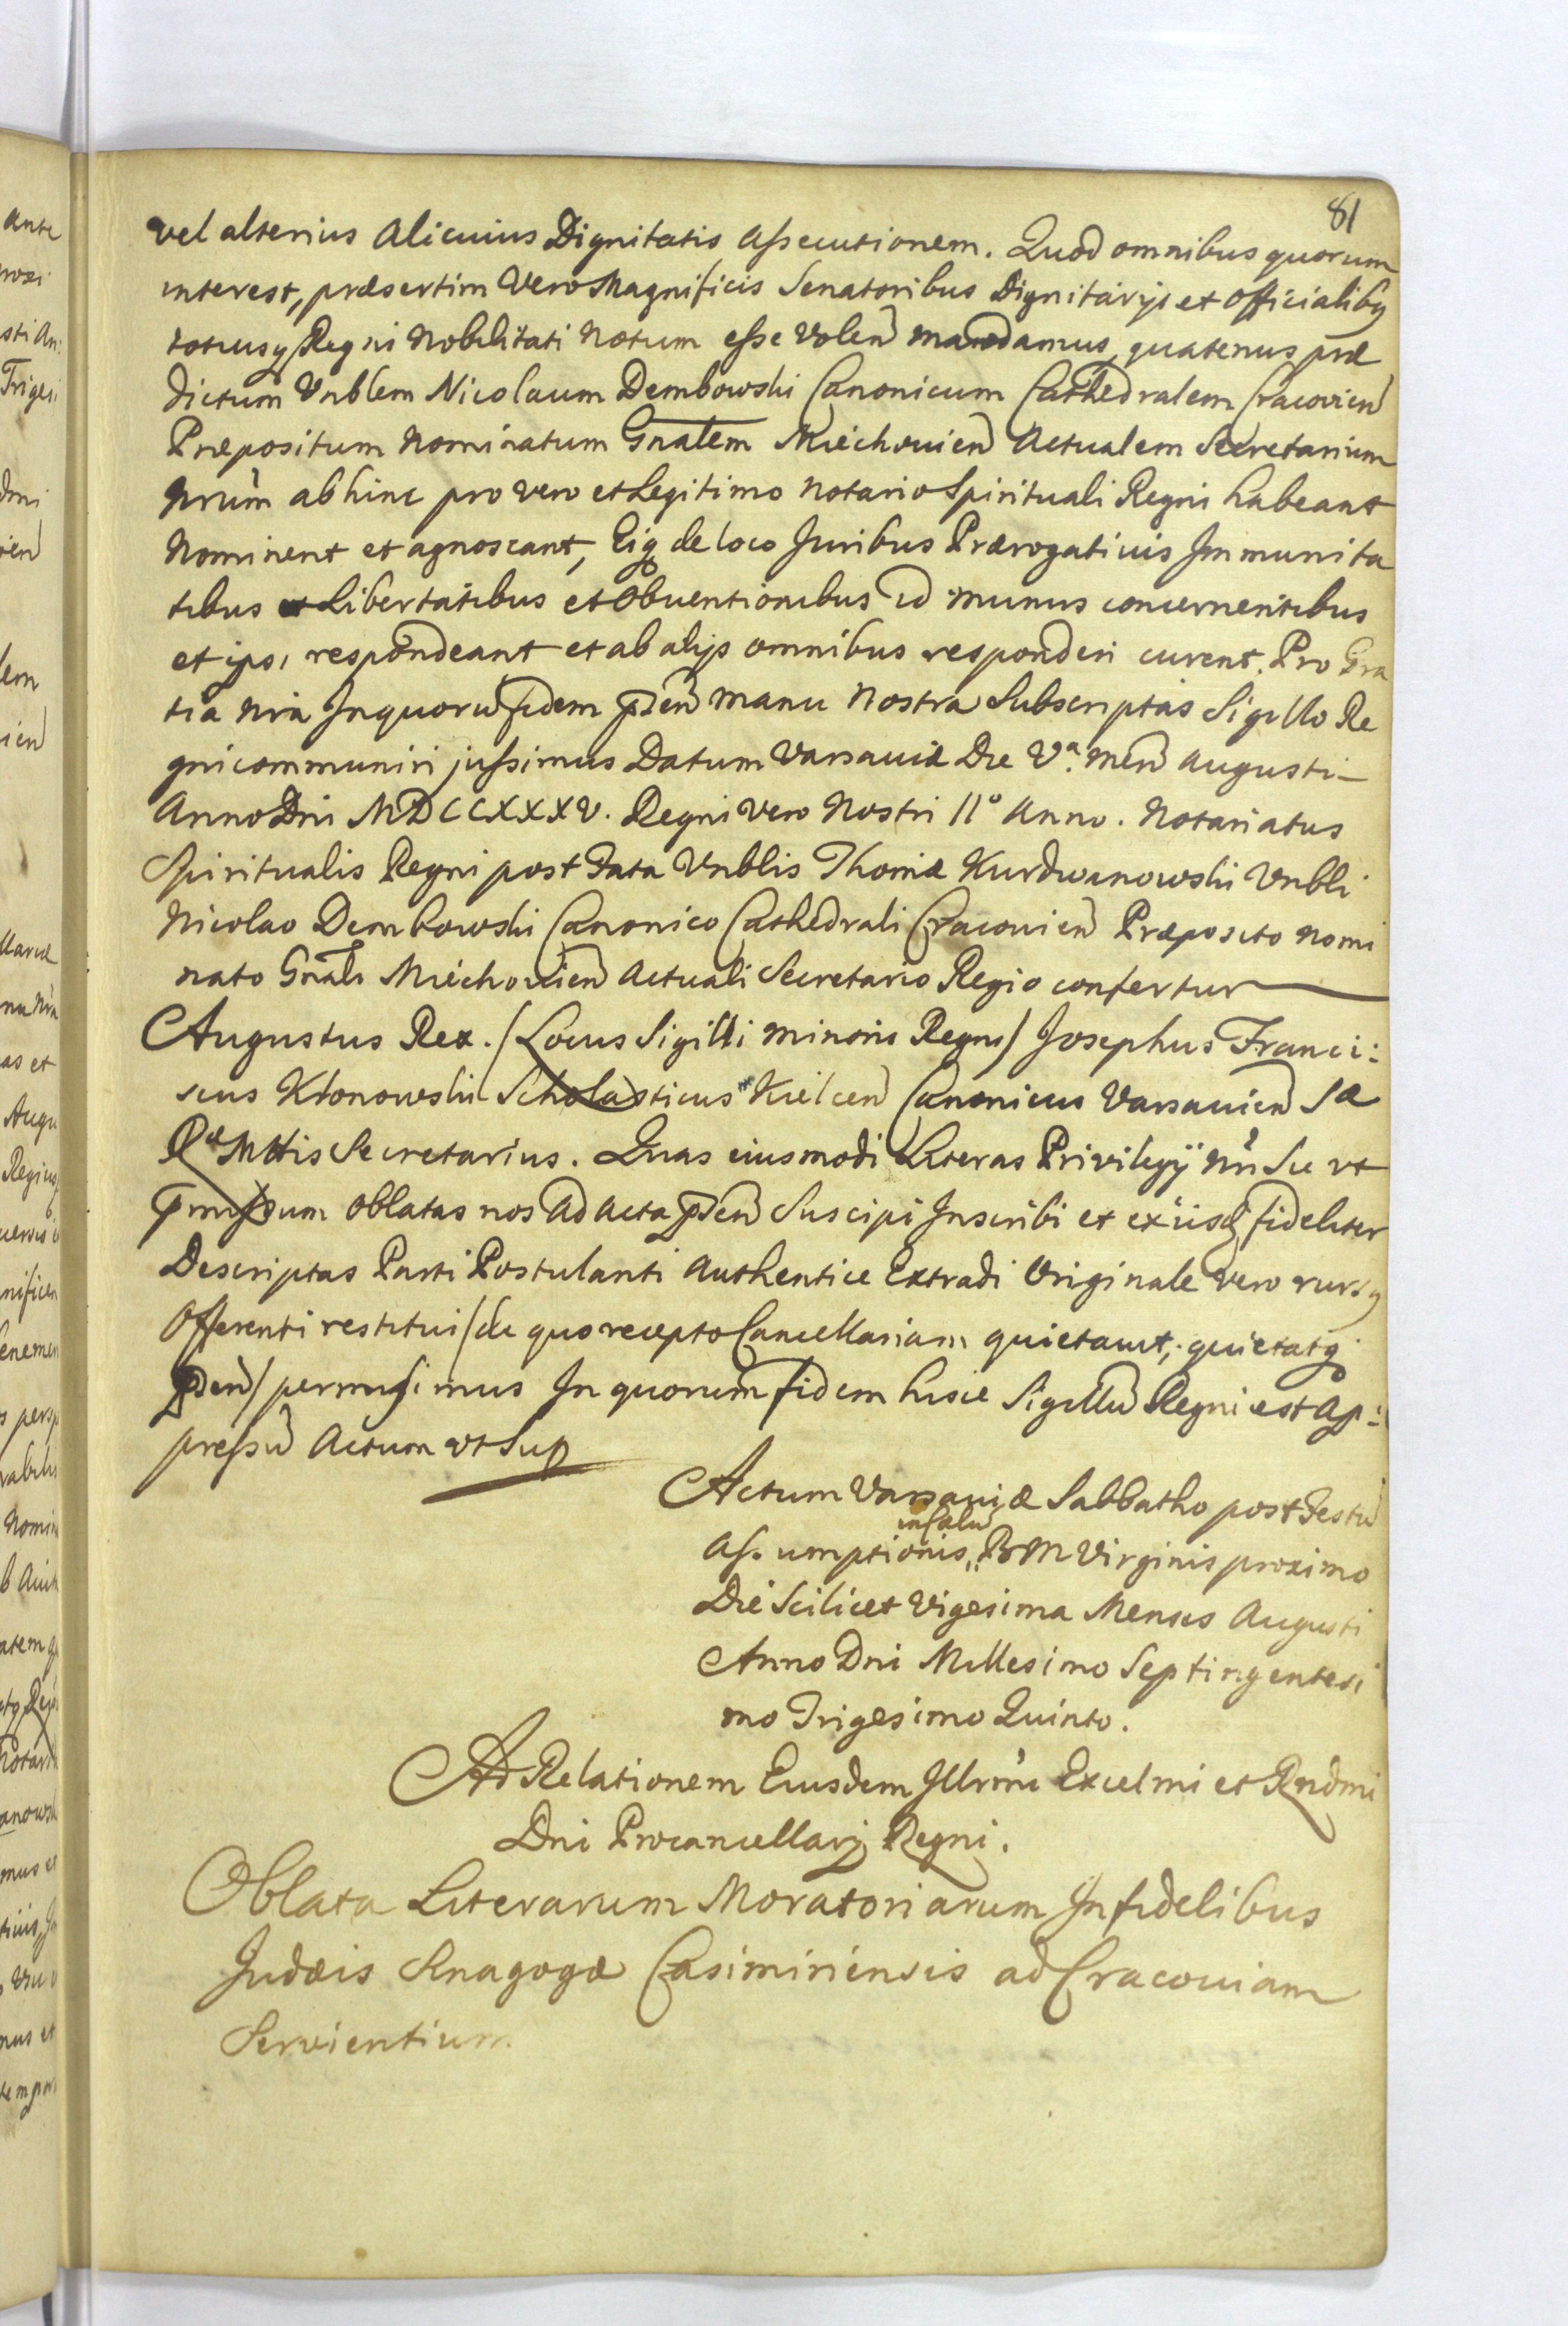 81
vel alterius alicuius Dignitatis assecutionem. Quod omnibus quorum
interest, præsertim vero Magnificis Senatoribus Dignitarijs et officialibq
totiusq Regni Nobilitati Notum esse volen mandamus, quatenus præ
dictum Vnblem Nicolaum Dembowski Canonicum Cathedralem Cracovien
Præpositum Nominatum Gnalem Miechouien Actualem Secretarium
Nrum abhinc pro vero et Legitimo Notario Spirituali Regni habeant
Nominent et agnoscant, Eiq de loco Juribus Prærogatiuis Immunita
tibus et Libertatibus et Obuentionibus id munus concernentibus
et ipsi respondeant et ab alijs omnibus responderi curent. Pro Gra
tia Nra In quoru fidem pñden manu Nostra Subscriptas Sigillo Re
gni communiri jussimus Datum Varsauiæ Die Vª. Men Augusti
Anno Dni MDCCXXXV. Regni vero Nostri IIº Anno. Notariatus
Spiritualis Regni post Fata Vnblis Thomæ Kurdwanowski Vnbli
Nicolao Dembowski Canonico Cathedrali Cracouien Præposito Nomi
nato Gnali Miechouien Actuali Secretario Regio confertur
Augustus Rex. / Locus Sigilli minoris Regni / Josephus Franci:
scus Kłonowski Scholasticus Kielcen Canonicus Varsauien Sæ
Ræ Mttis Secretarius. Quas eiusmodi Literas Privilegij nri Se vt
pmissum oblatas nos ad acta pden Suscipi Inscribi et ex iisdq fideliter
Descriptas Parti Postulanti authentice Extradi Originale vero rursq
Offerenti restitui / de quo recepto Cancellariam quietauit, quietatq
pden / permisimus In quorum fidem hisce Sigillu Regni est ap:
pressu Actum vt Sup
Actum Varsauiæ Sabbatho post Festu
Assumptionis in Cælu B M Virginis proximo
Die Scilicet Vigesima Mensis Augusti
Anno Dni Millesimo Septingentesi
mo Trigesimo Quinto.
Ad Relationem Eiusdem Illrmi Excelmi et Rndmi
Dni Procancellarij Regni.
Oblata Literarum Moratoriarum Infidelibus
Judæis Sinagogæ Casimiriensis ad Cracouiam
Servientium